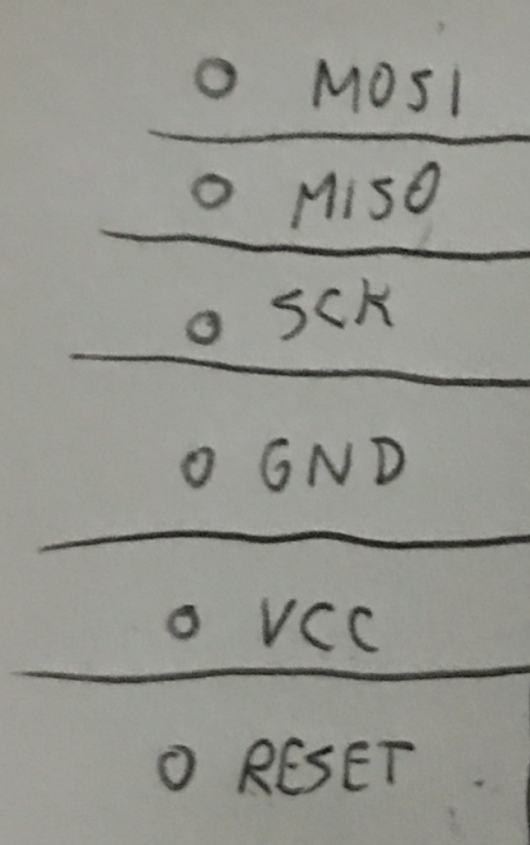 MOSI
MISO
SCK
GND
VCC
RESET